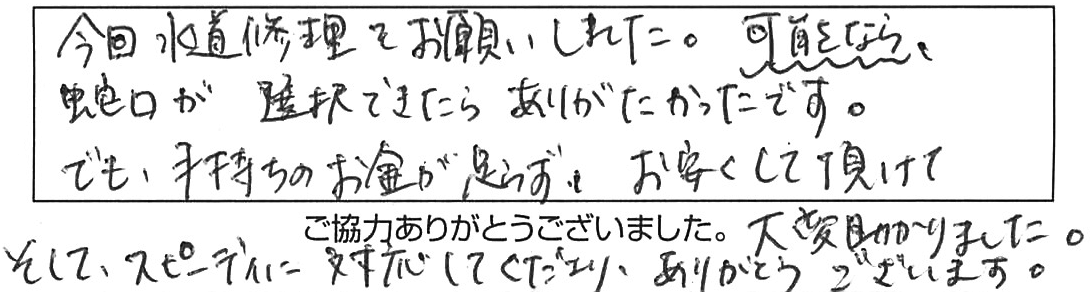 今回水道修理をお願いしました。可能なら、
蛇口が選択できたらありがたかったです。
でも、手持ちのお金が足らず、お安くして頂けて
ご協力ありがとうございました。
大変助かりました。
そして、スピーディに対応してくださり、ありがとうございます。